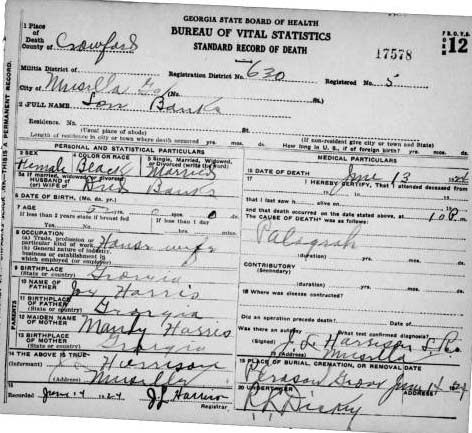 GEORGIA STATE BOARD OF HEALTH
BUREAU OF VITAL STATISTICS
STANDARD RECORD OF DEATH
1 Place of Death
County of Crawford
17578
12
Militia District of Registration District No. 630 Registered No. 5
City of Musella Ga (No. St.)
2 FULL NAME Banks
Residence. No. St.)
(Usual place of abode) (If non-resident give city or town and State)
Length of residence in city or town where death occurred yrs. mos. ds. How long in U. S., if of foreign birth? yrs. mos. ds.
PERSONAL AND STATISTICAL PARTICULARS
MEDICAL PARTICULARS
3 SEX
4 COLOR OR RACE
5 Single, Married, Widowed, or Divorced (write the word)
Female Black Married
5a If married, widowed, or divorced
HUSBAND of
(or) WIFE of Banks
6 DATE OF BIRTH (Mo. da. yr.)
7 AGE yrs. mos. ds.
If less than 2 years state if breast fed If less than 1 day
8 OCCUPATION
(a) Trade, profession or particular kind of work House wife
(b) General nature of industry, business or establishment in which employed (or employer)
9 BIRTHPLACE
(State or country) Georgia
10 NAME OF FATHER Harris
11 BIRTHPLACE OF FATHER
(State or country) Georgia
12 MAIDEN NAME OF MOTHER Harris
13 BIRTHPLACE OF MOTHER
(State or country) Georgia
PARENTS
14 THE ABOVE IS TRUE
(Informant) Harrison
(Address) Musella
15
Recorded June 14 1924 J L Harrison
Registrar
16 DATE OF DEATH June 13 1924
17 I HEREBY CERTIFY, That I attended deceased from
that I last saw alive on
and that death occurred on the date stated above, at 10 P m.
The CAUSE OF DEATH was as follows:
(duration) yrs. mos. ds.
CONTRIBUTORY
(Secondary)
(duration) yrs. mos. ds.
18 Where was disease contracted?
Did an operation precede death? Date of
Was there an autopsy What test confirmed diagnosis?
(Signed) J. L. Harrison
(Address) Musella
19 PLACE OF BURIAL, CREMATION, OR REMOVAL DATE
Grove June 14 24
20 UNDERTAKER (Address)